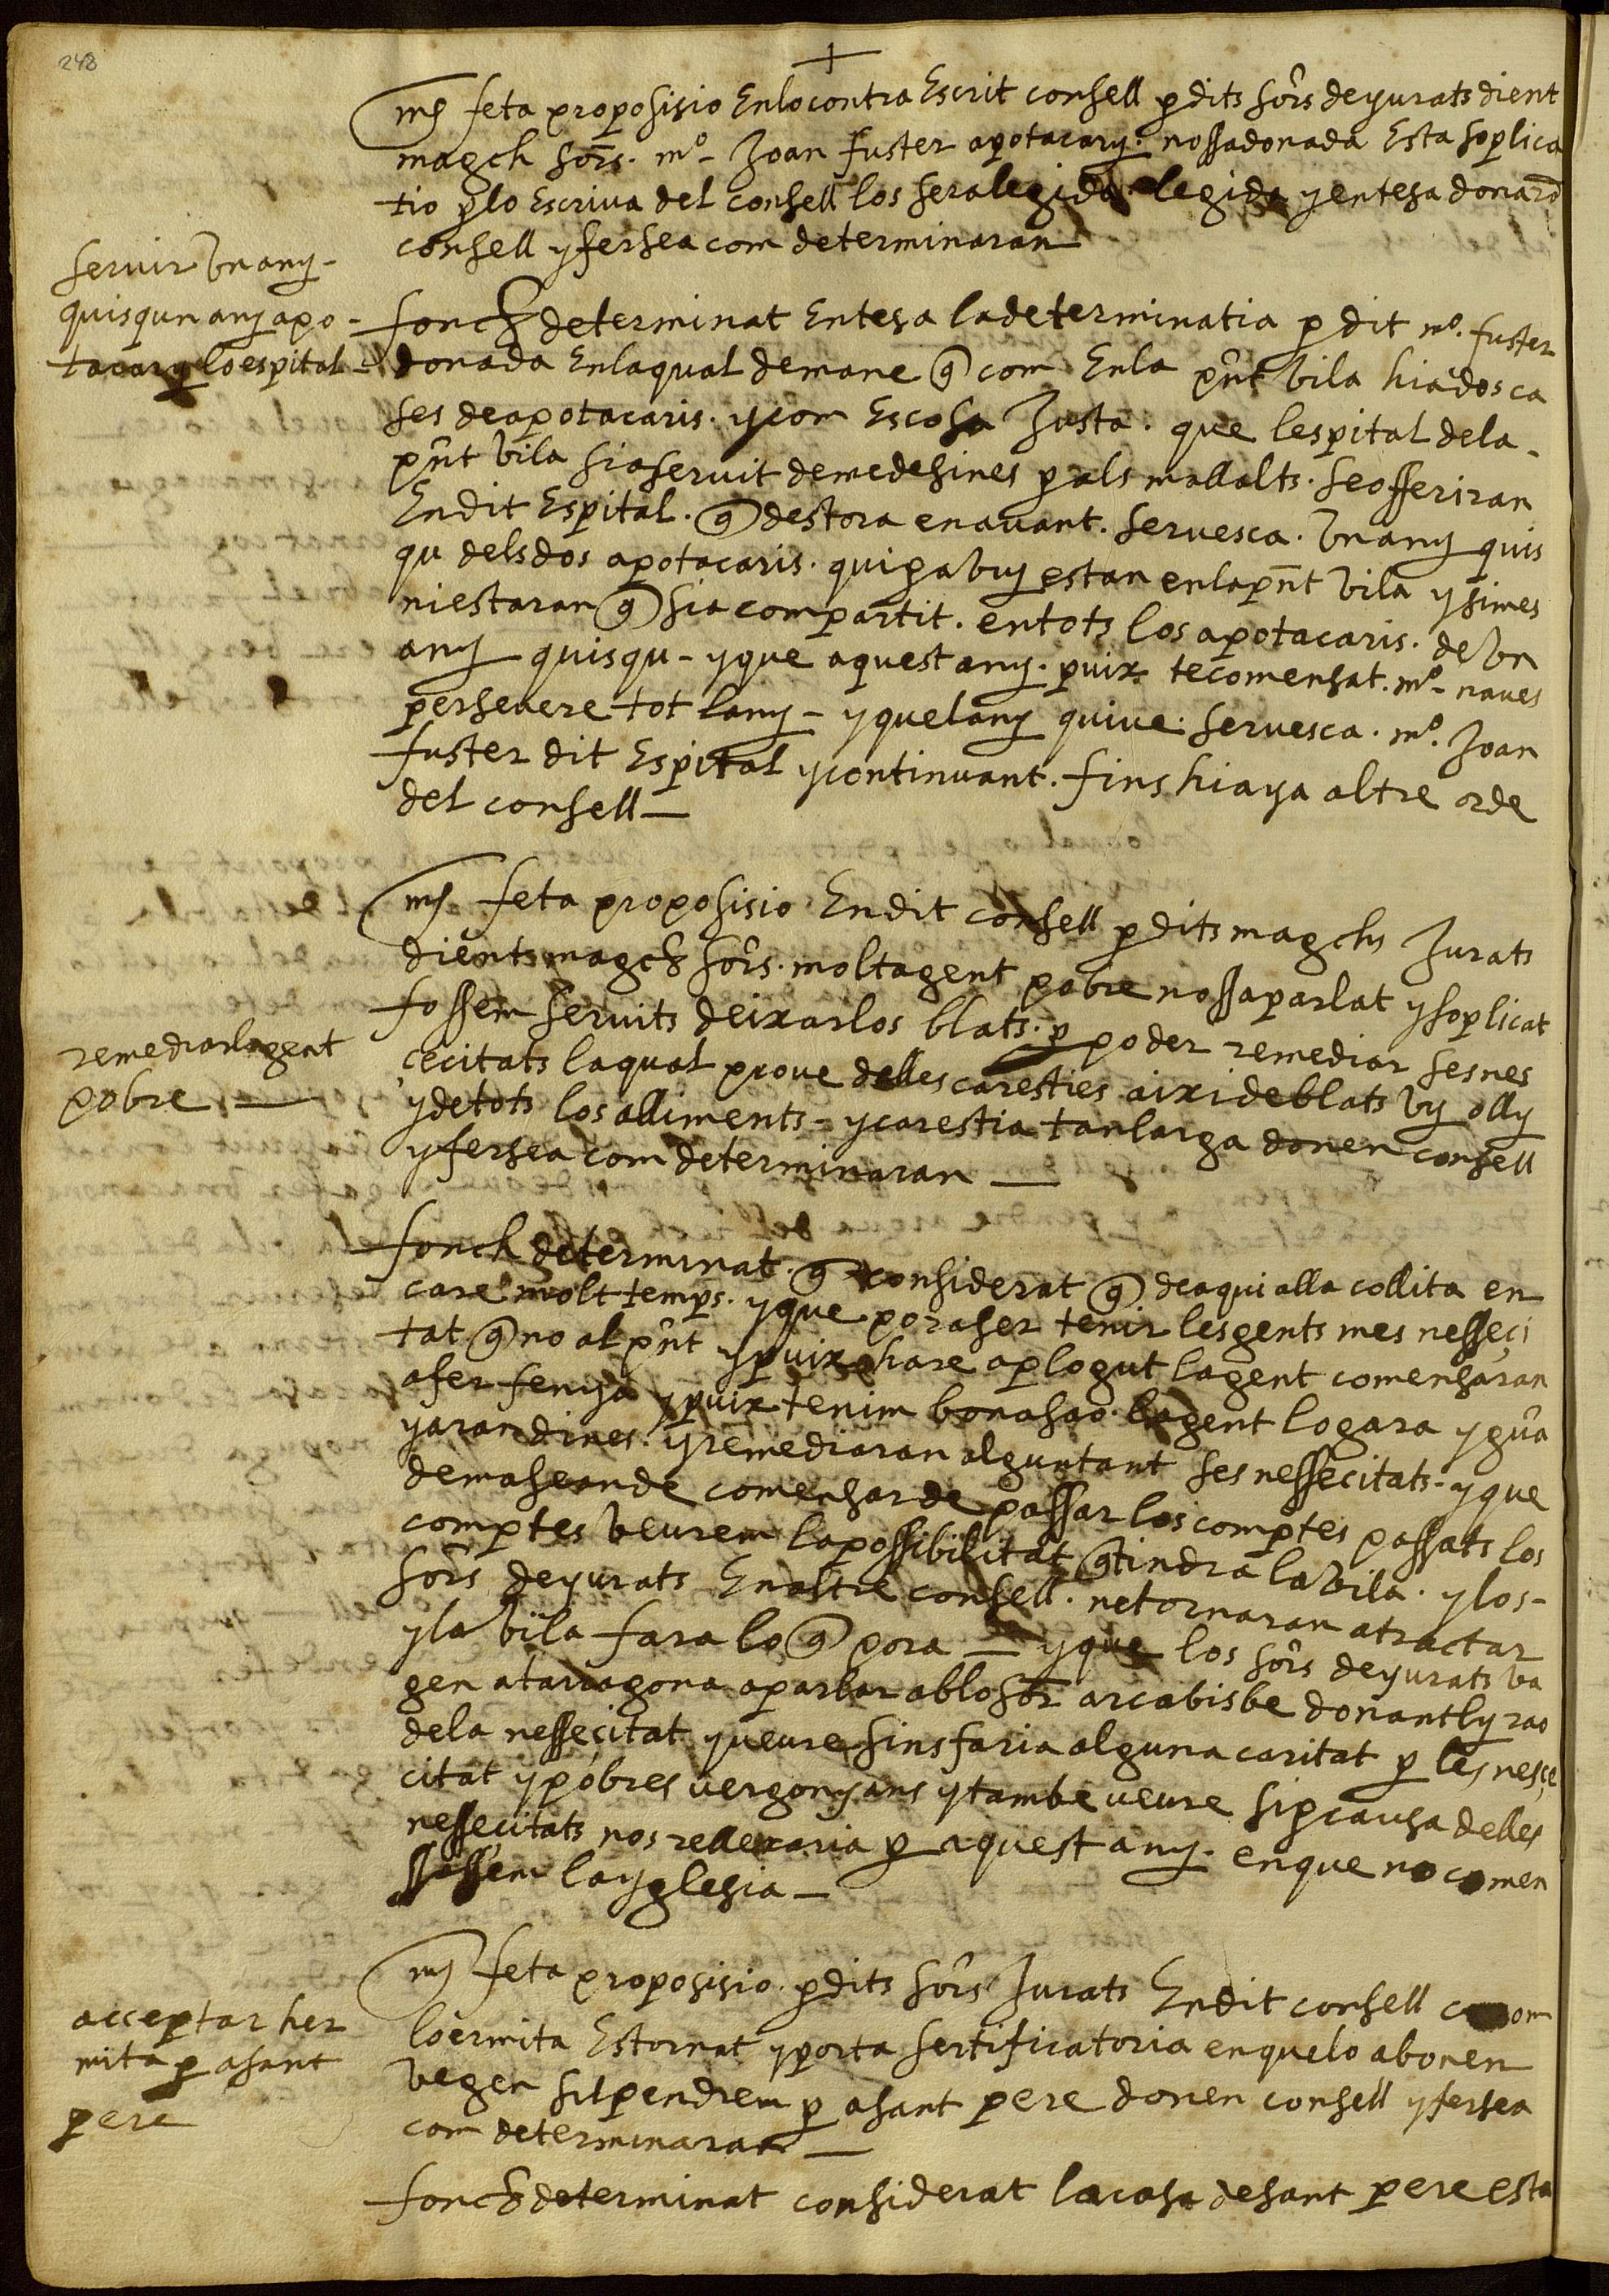 248
+
mes feta proposisio Enlo contra Escrit consell p dits sors de yurats dient
magch sors. mº Joan fuster apotacary. nossa donada Esta soplica
tio p lo Escriva del consell los sera legida legida y entesa donarā
consell y fer sea com determinaran
servir Un any
quisqun any apo-
tacary lo espital
fonch determinat Entesa la determinatia p dit mº. fuster
donada En la qual demane q com En la pnt vila hia dos ca
ses de apotacaris. y com Es cosa Justa. que lespital de la
pnt vila sia servit de medesines p als mallalts. se offeriran
En dit Espital. q destora en avant. servesca. Un any quis
qu dels dos apotacaris. qui ya vuy estan en la pnt vila y si mes
ni estaran q sia compartit. en tots los apotacaris. de Un
any quisqu - y que aquest any. puix te comensat. mº naves
persevere tot lany - y que lany qui ve. servesca. mº. Joan
fuster dit Espital y continuant. fins hi aya altre orde
del consell
mes feta proposisio En dit consell p dits magchs Jurats
dients magch sors. molta gent pobre nossa parlat y soplicat
fossem servits deixarlos blats. p poder remediar ses nes
cecitats la qual prove delles caresties aixi de blats vy olly
y de tots los alliments - y carestia tan larga donen consell
y fer sea com determinaran
remediar la gent
pobre
fonch determinat. q considerat q de aqui alla collita en
care molt temps. y que pora ser tenir les gents mes nesseci
tat q no al pnt y puix hare a plogut la gent comensaran
a fer fenya y puix tenim bona sao la gent logara y gua
yaran dines. y remediaran algun tant ses nessecitats - y que
dema se an de comensar de passar los comptes passats los
comptes veurem la possibilitat q tindra la vila. y los
sors de yurats En altre consell. ne tornaran a tractar
y la vila fara lo q pora - y que los sors de yurats va
gen a tarragona a parlar ab lo sor arcabisbe donantly rao
de la nessecitat y veure sins faria alguna caritat p les nesçe
citat y pobres vergonyans y tambe veure si p causa delles
nessecitats nos rellexaria p aquest any. en que no comen
sassem la yglesia
mes feta proposisio. p dits sors Jurats En dit consell com
lo ermita Es tornat y porta sertificatoria en que lo abonen
vegen sil pendrem p a sant pere donen consell y fer sea
com determinaran
acceptar her
mita p a sant
pere
fonch determinat considerat la casa de sant pere esta